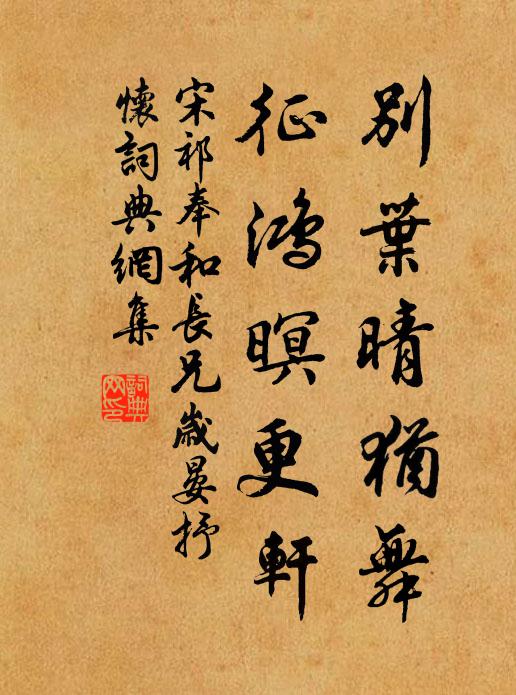 別葉晴猶舞
征鴻暝更軒
宋祁奉和長兄歲晏抒
懷詞典網集
詞典
网印